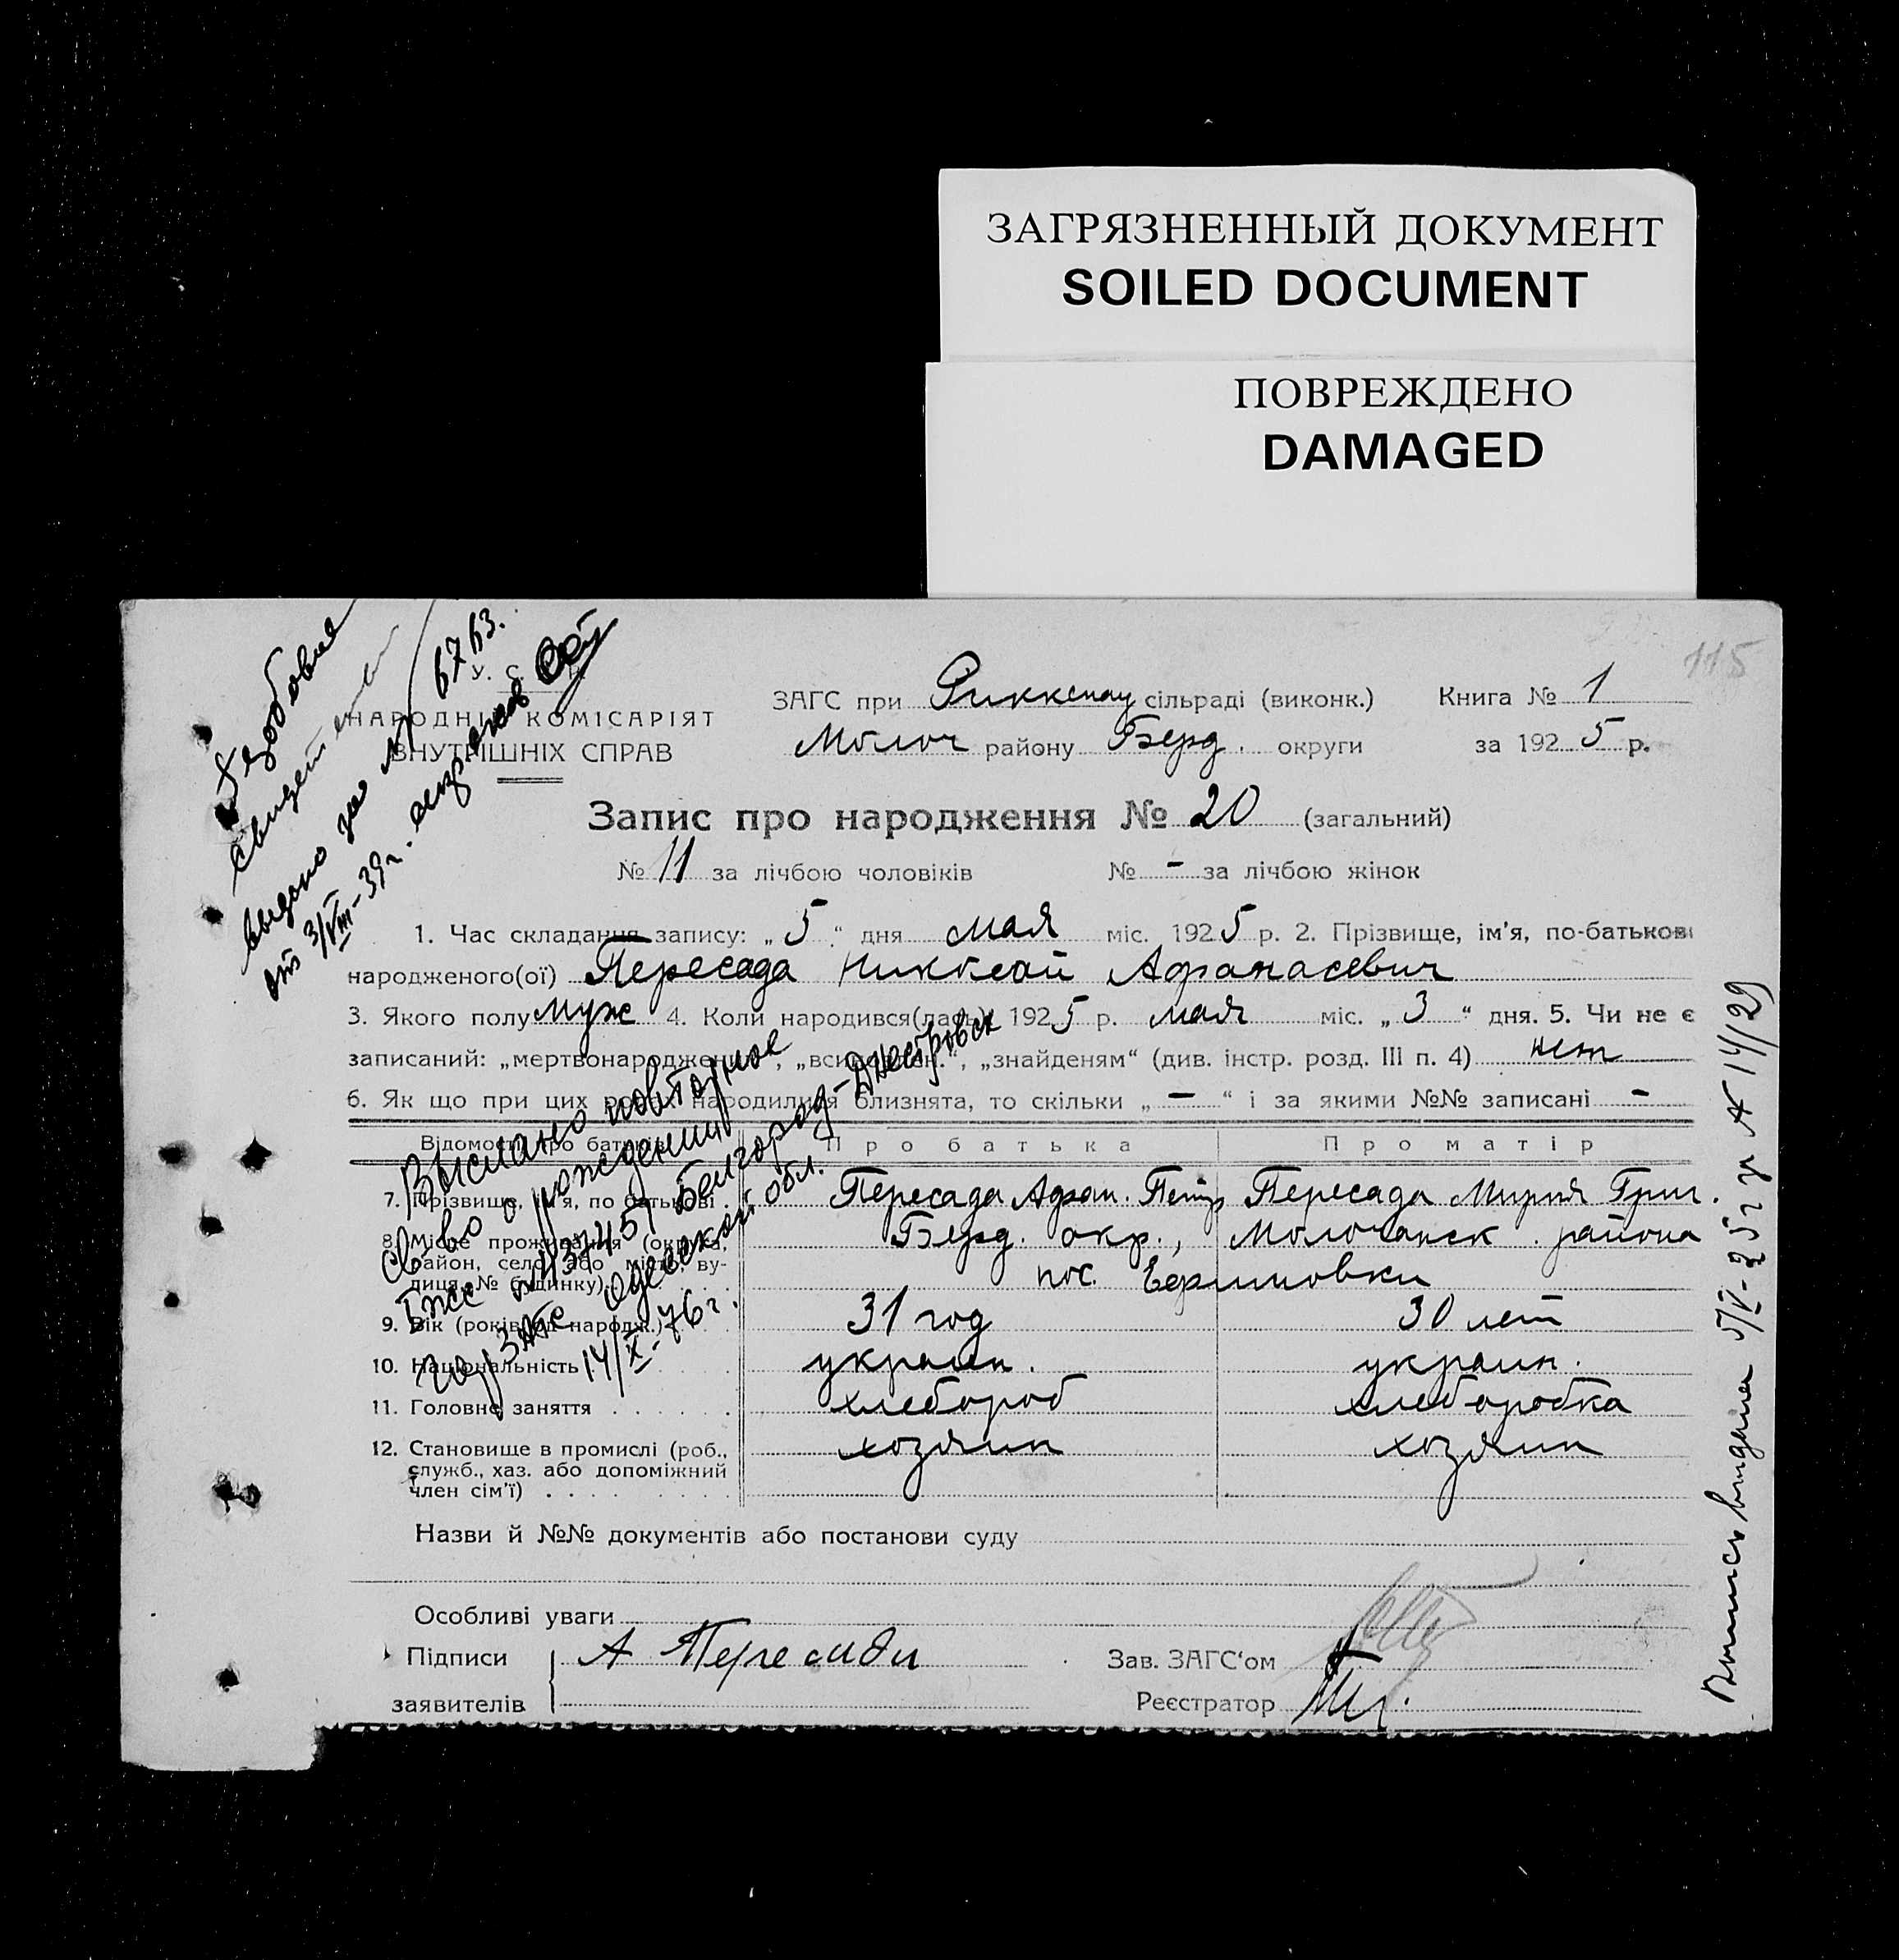 ЗАГРЯЗНЕННЫЙ ДОКУМЕНТ
SOILED DOCUMENT
ПОВРЕЖДЕНО
DAMAGED
115
НАРОДНІЙ КОМІСАРІЯТ
ВНУТРІШНІХ СПРАВ
ЗАГС при Риккенау сільраді (виконк.) Книга № 1
Молоч району Берд. округи за 1925 р.
Запис про народження № 20 (загальний)
№ 11 за лічбою чоловіків № - за лічбою жінок
1. Час складання запису: „5“ дня мая міс. 1925 р. 2. Прізвище, ім'я, по-батькові
народженого(ої) Пересада Николай Афанасевич
3. Якого полу муж 4. Коли народився(лась) 1925 р. мая міс. „3“ дня. 5. Чи не є
записаний: „мертвонароджений“, „всиновлен.“, „знайденям“ (див. інстр. розд. III п. 4) нет
6. Як що при цих родах народилися близнята, то скільки „-“ і за якими №№ записані -
Відомости про батьків Про батька Про матір
7. Прізвище, ім'я, по батькові Пересада Афан. Петр Пересада Мирия Григ.
8. Місце проживання (округа, район, село, або місто, вулиця, № будинку) Берд. окр., Молочанск. района
пос.
9. Вік (років від народж.) 31 год 30 лет
10. Національність украин. украин.
11. Головне заняття хлебороб хлеборобка
12. Становище в промислі (роб., хозяин хозяин
служб., хаз. або допоміжний
член сім'ї)
Назви й №№ документів або постанови суду
Особливі уваги
Підписи А Пересада Зав. ЗАГС'ом
заявителів Реєстратор
свидет
выдано за № 6763.
от 3/VIII-39г.
Выслано повторное
св-во о рождении
№ 437451 Белгород-Днестровск
ЗАГС Одесской обл.
14/X-76г.
Выпись выдана 5/V-25г за № 14/29